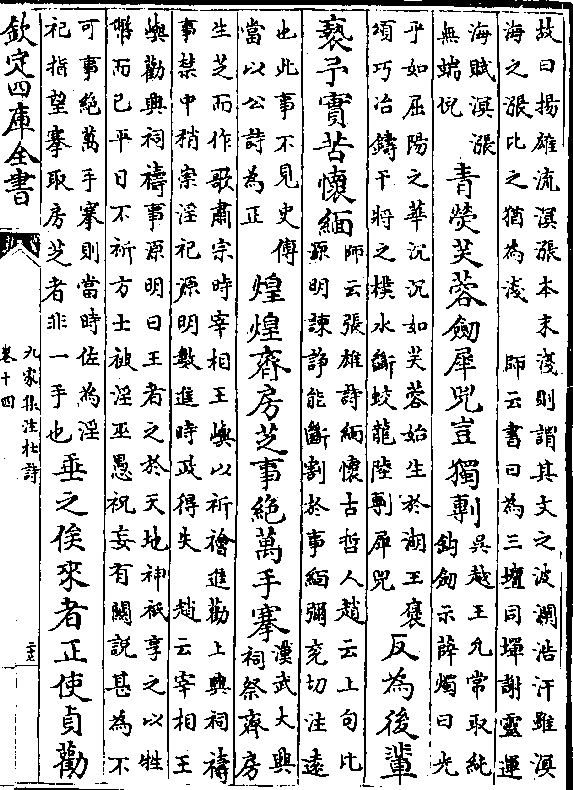 故曰揚雄流溟漲本末淺則謂其文之波瀾浩汗雖溟
海之漲比之猶為淺　師云書曰為三壇同墠謝靈運
海賦溟漲
無端倪
青熒芙蓉劒犀兕豈獨剸
吳越王允常取純
鈎劒示薛燭曰光
乎如屈陽之華沉沉如芙蓉始生於湖王褒
頌巧冶鑄干將之樸水斷蛟龍陸剸犀兕
反為後輩
褻予實苦懷緬
師云張雄詩緬懷古哲人趙云上句比
源明諫諍能斷割於事緬彌兖切注遠
也此事不見史傳
當以公詩為正
煌煌齋房芝事絶萬手搴
漢武大興
祠祭齊房
生芝而作歌肅宗時宰相王嶼以祈禬進勸上興祠禱
事禁中稍崇淫祀源明數進時政得失　趙云宰相王
嶼勸興祠禱事源明曰王者之於天地神祇享之以牲
幣而已平日不祈方士被淫巫愚祝妄有關說甚為不
可事絶萬手搴則當時佐為淫
祀指望搴取房芝者非一手也
垂之俟來者正使貞勸
欽定四庫全書
九家集注杜詩
卷十四